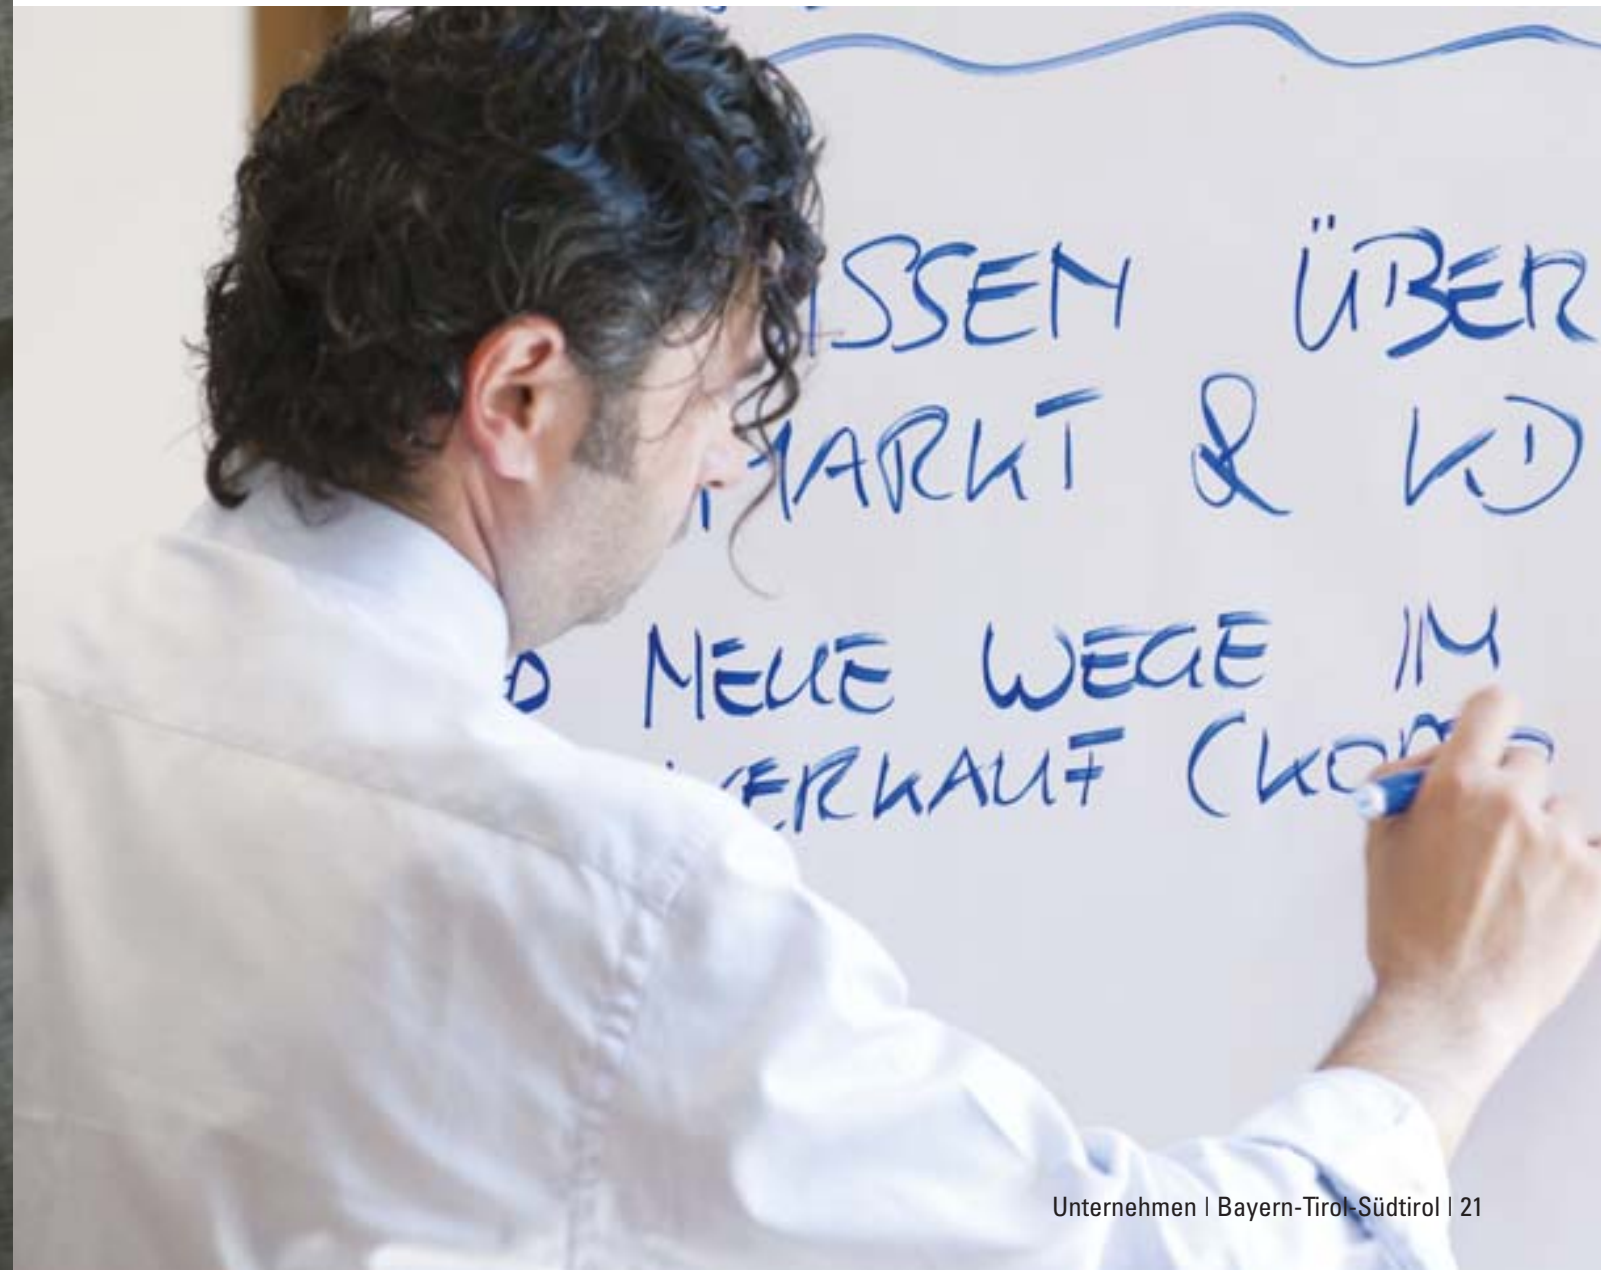 ISSEN ÜBER
MARKT & KD
NEUE WEGE IM
VERKAUF (KOMP
Unternehmen | Bayern-Tirol-Südtirol | 21